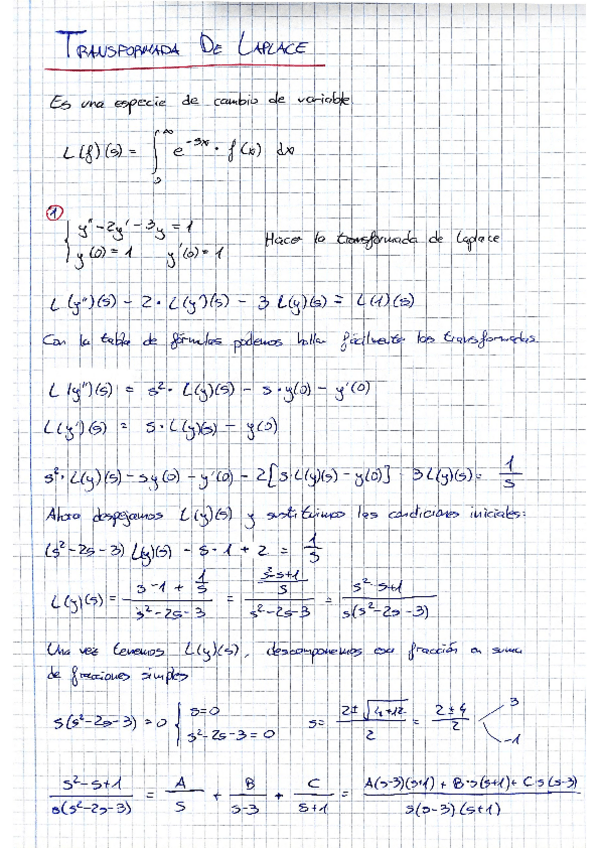 TRANSFORMADA DE LAPLACE
Es una especie de cambio de variable
L(f)(s) = ∫₀^∞ e^{-sx} · f(x) dx
①
{ y'' - 2y' - 3y = 1
y(0) = 1 y'(0) = 1 Hacer la transformada de Laplace
L(y'')(s) - 2 · L(y')(s) - 3 L(y)(s) = L(1)(s)
Con la tabla de fórmulas podemos hallar fácilmente las transformadas.
L(y'')(s) = s² · L(y)(s) - s · y(0) - y'(0)
L(y')(s) = s · L(y)(s) - y(0)
s² · L(y)(s) - s y(0) - y'(0) - 2[s · L(y)(s) - y(0)] - 3L(y)(s) = 1/s
Ahora despejamos L(y)(s) y sustituimos las condiciones iniciales:
(s² - 2s - 3) L(y)(s) - s - 1 + 2 = 1/s
L(y)(s) = (s - 1 + 1/s)/(s² - 2s - 3) = ((s² - s + 1)/s)/(s² - 2s - 3) = (s² - s + 1)/(s(s² - 2s - 3))
Una vez tenemos L(y)(s), descomponemos esa fracción en suma
de fracciones simples
s(s² - 2s - 3) = 0 { s = 0
s² - 2s - 3 = 0 s = (2 ± √(4 + 12))/2 = (2 ± 4)/2 3
-1
(s² - s + 1)/(s(s² - 2s - 3)) = A/s + B/(s - 3) + C/(s + 1) = (A(s - 3)(s + 1) + B · s(s + 1) + C · s(s - 3))/(s(s - 3)(s + 1))